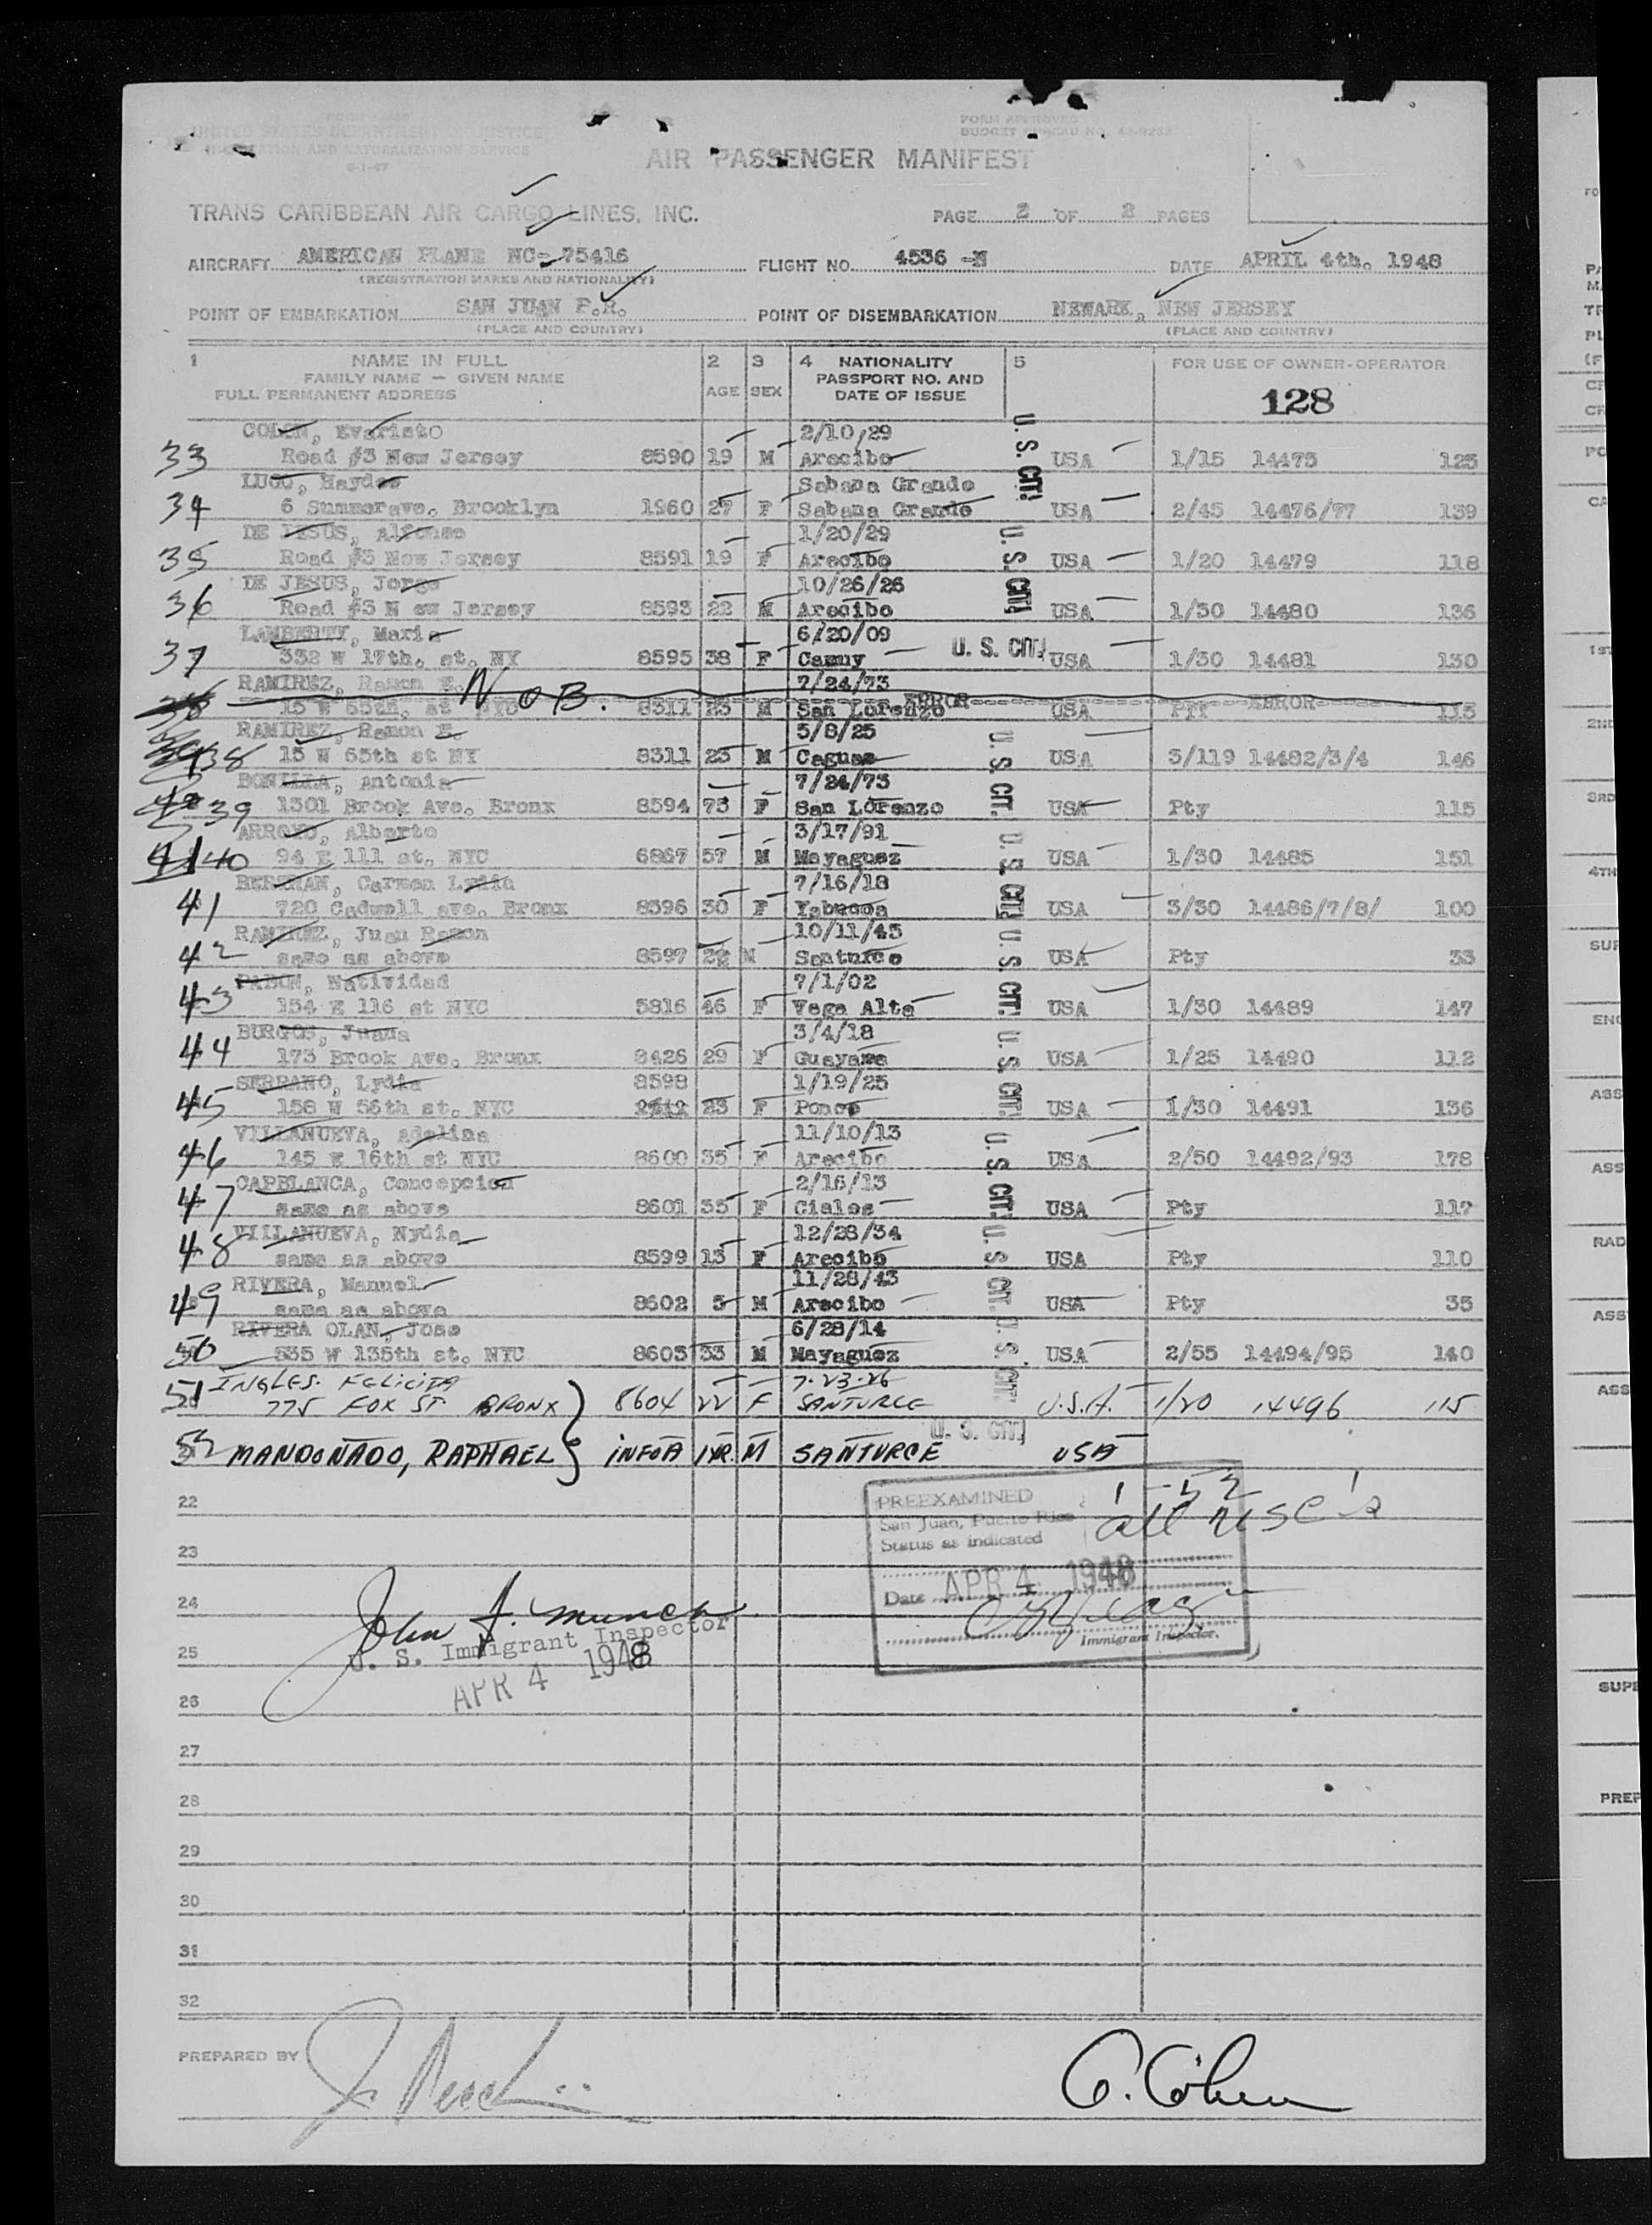 UNITED STATES DEPARTMENT OF JUSTICE
IMMIGRATION AND NATURALIZATION SERVICE
FORM APPROVED
BUDGET BUREAU NO. 43-R252
AIR PASSENGER MANIFEST
TRANS CARIBBEAN AIR CARGO LINES, INC.
PAGE 2 OF 2 PAGES
AIRCRAFT AMERICAN PLANE NC- 75416
FLIGHT NO. 4536 -N
DATE APRIL 4th. 1948
(REGISTRATION MARKS AND NATIONALITY)
POINT OF EMBARKATION SAN JUAN P.R.
POINT OF DISEMBARKATION NEWARK, NEW JERSEY
(PLACE AND COUNTRY) (PLACE AND COUNTRY)
1 NAME IN FULL 2 3 4 NATIONALITY 5 FOR USE OF OWNER-OPERATOR
FAMILY NAME — GIVEN NAME AGE SEX PASSPORT NO. AND
FULL PERMANENT ADDRESS DATE OF ISSUE 128
COLON, Evaristo 2/10/29
33 Road #3 New Jersey 8590 19 M Arecibo U. S. CIT. USA 1/15 14475 125
LUGO, Haydee Sabana Grande
34 6 Summerave. Brooklyn 1960 27 F Sabana Grande USA 2/45 14476/77 139
DE JESUS, Alfonso 1/20/29
35 Road #3 New Jersey 8591 19 F Arecibo U. S. CIT. USA 1/20 14479 118
DE JESUS, Jorge 10/26/26
36 Road #3 N ew Jersey 8593 22 M Arecibo USA 1/30 14480 136
LAMBERTY, Maria 6/20/09
37 332 W 17th. st. NY 8595 38 F Camuy U. S. CIT. USA 1/30 14481 130
RAMIREZ, Ramon E. NOB. 7/24/73
15 W 65th. st NYC 8311 23 M San Lorenzo ERROR USA Pty ERROR 115
RAMIREZ, Ramon E. 5/8/25
38 15 W 65th st NY 8311 23 M Caguas U. S. CIT. USA 3/119 14482/3/4 146
BONILLA, Antonia 7/24/73
39 1301 Brook Ave. Bronx 8594 75 F San Lorenzo USA Pty 115
ARROYO, Alberto 3/17/91
40 94 E 111 st. NYC 6867 57 M Mayaguez U. S. CIT. USA 1/30 14485 151
Carmen Lydia 7/16/18
41 720 Cadwell ave. Bronx 8596 30 F Yabucoa USA 3/30 14486/7/8/ 100
RAMIREZ, Juan Ramon 10/11/45
42 same as above 8597 M Santurce U. S. CIT. USA Pty 33
PABON, Natividad 7/1/02
43 154 E 116 st NYC 5816 46 F Vega Alta USA 1/30 14489 147
BURGOS, Juana 3/4/18
44 173 Brook Ave. Bronx 8426 29 F Guayama U. S. CIT. USA 1/25 14490 112
SERRANO, Lydia 8598 1/19/25
45 158 W 56th st. NYC 23 F Ponce USA 1/30 14491 136
VILLANUEVA, Adelina 11/10/13
46 145 E 16th st NYC 8600 35 F Arecibo U. S. CIT. USA 2/50 14492/93 178
CAPBLANCA, Concepcion 2/16/13
47 same as above 8601 35 F Ciales USA Pty 117
VILLANUEVA, Nydia 12/28/34
48 same as above 8599 13 F Arecibo U. S CIT. USA Pty 110
RIVERA, Manuel 11/28/43
49 same as above 8602 5 M Arecibo USA Pty 35
RIVERA OLAN, Jose 6/28/14
50 535 W 135th st. NYC 8603 33 M Mayaguez U. S. CIT. USA 2/55 14494/95 140
51 INGLES. FELICITA 7-23-26
775 FOX ST. BRONX 8604 22 F SANTURCE U.S.A. 1/20 14496 115
U. S. CIT.
52 MANDONADO, RAPHAEL INFOA 1YR. M SANTURCE USA
PREEXAMINED 1-52
22 San Juan, Puerto Rico all USC's
Status as indicated
23
Date APR 4 1948
24 John A. Munch
U. S. Immigrant Inspector Immigrant Inspector.
25
APR 4 1948
26
27
28
29
30
31
32
PREPARED BY
G. Cohen